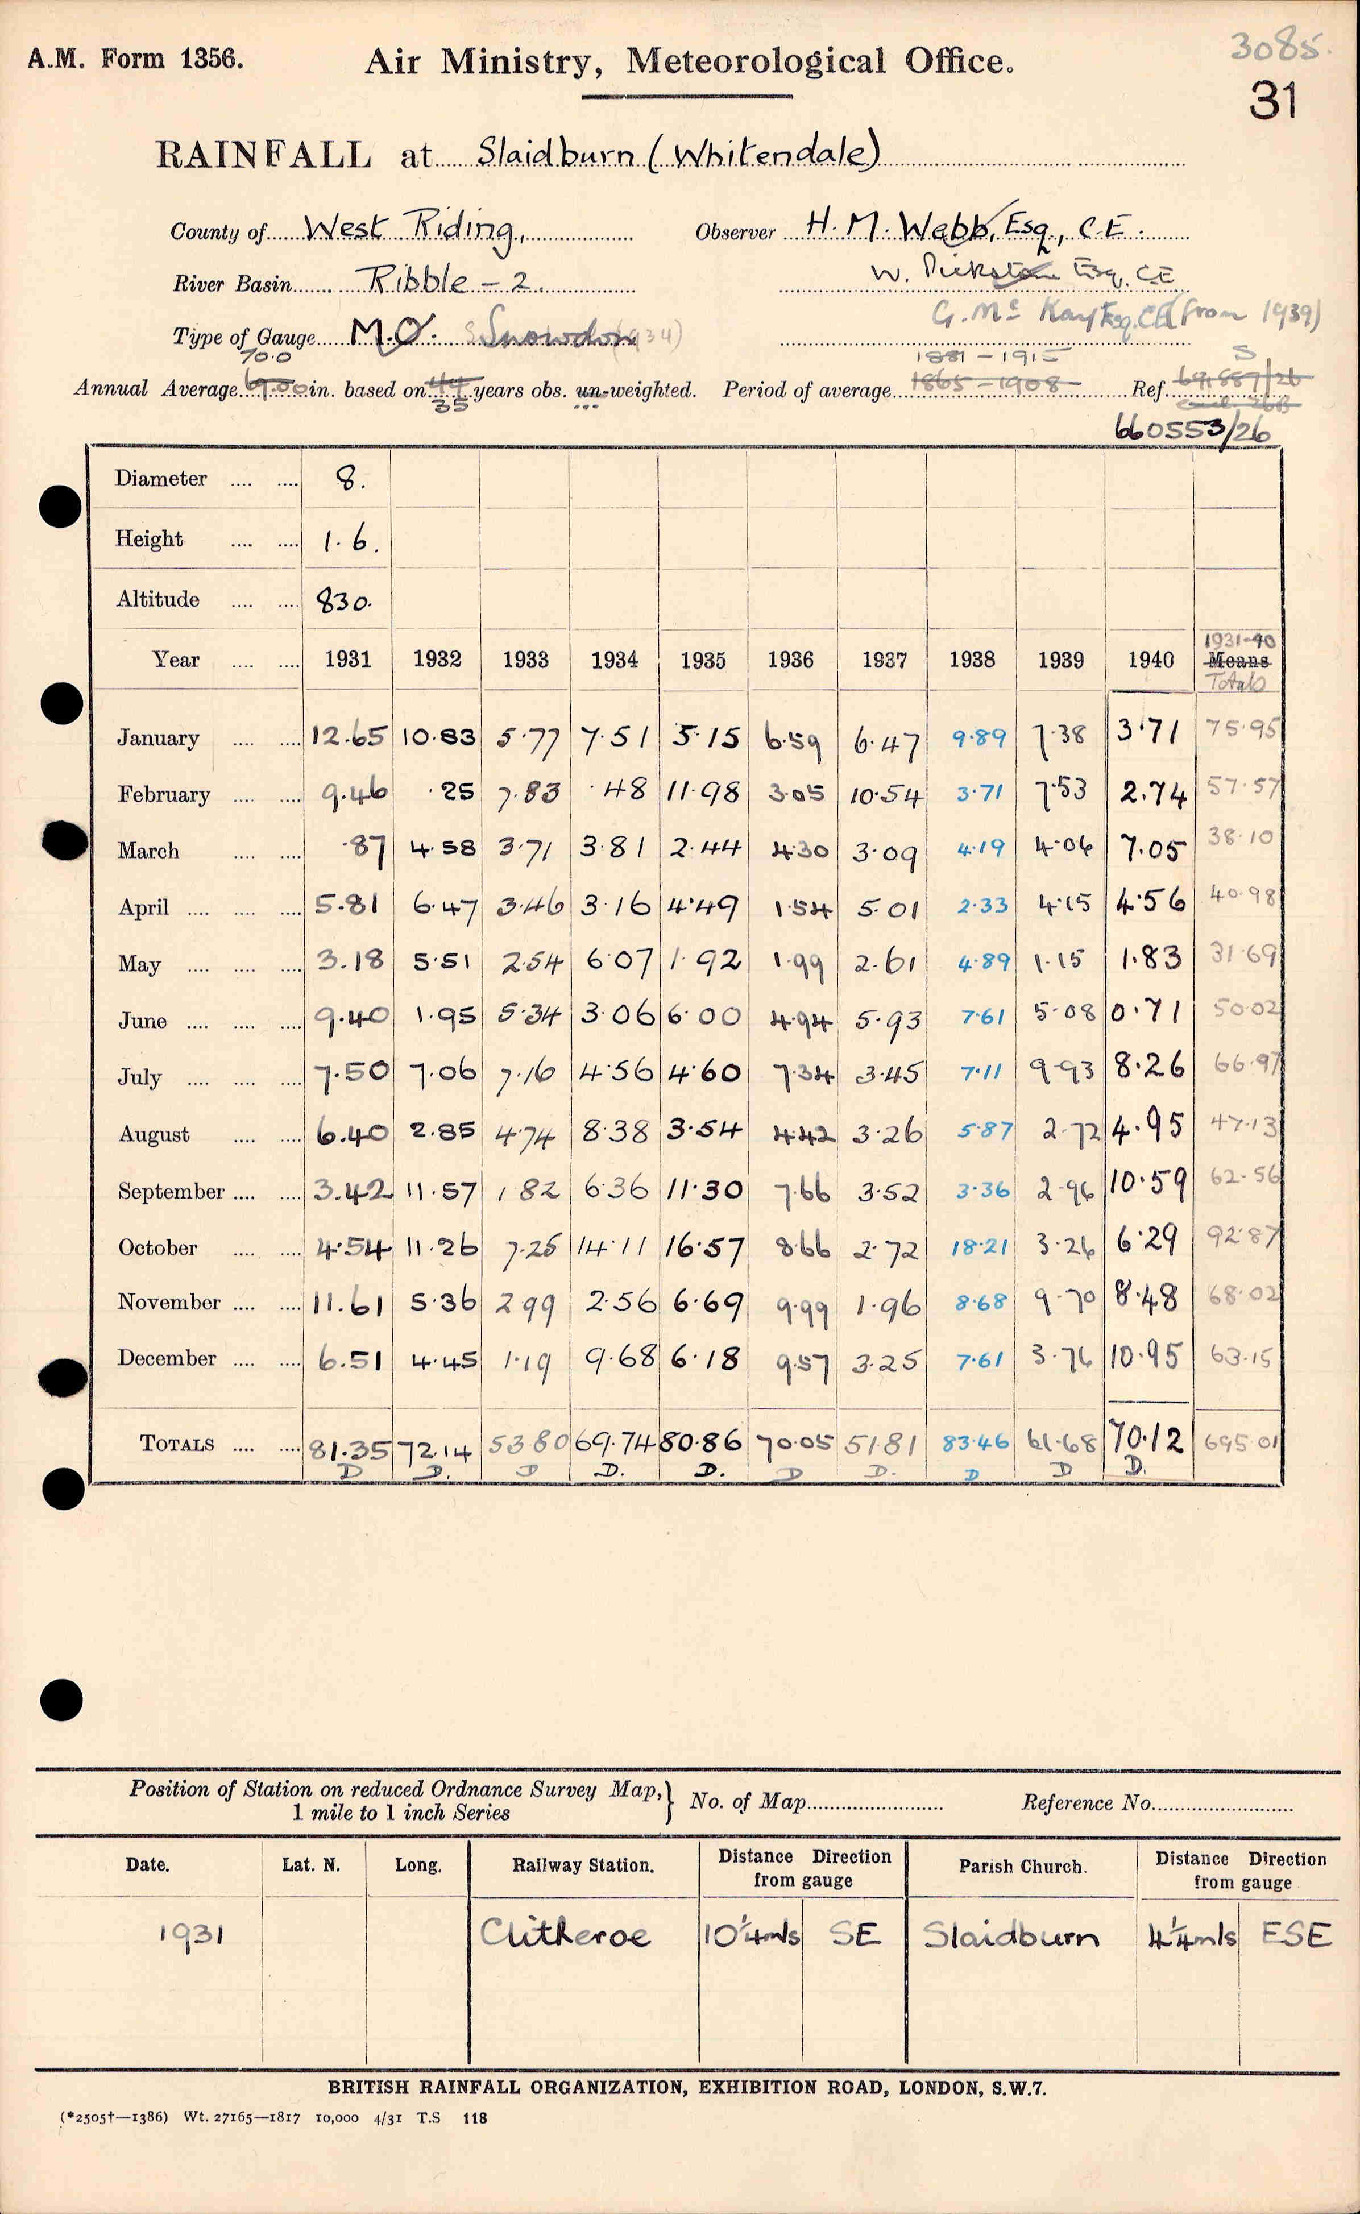 3085.
A.M. Form 1356. Air Ministry, Meteorological Office.
31
RAINFALL at Slaidburn (Whitendale)
County of West Riding, Observer H. M. Webb, Esq., C.E.
River Basin Ribble - 2. W. Esq. C.E
G. Mc Kay Esq. CE (from 1939)
Type of Gauge M.O. Snowdon (1934)
70.0 1881 - 1915 S
Annual Average 69.00 in. based on 44 years obs. un-weighted. Period of average 1865 - 1908 Ref
35
660553/26
Diameter 8.
Height 1.6.
Altitude 830.
1931-40
Year 1931 1932 1933 1934 1935 1936 1937 1938 1939 1940 Means
Totals
January 12.65 10.83 5.77 7.51 5.15 6.59 6.47 9.89 7.38 3.71 75.95
February 9.46 .25 7.83 .48 11.98 3.05 10.54 3.71 7.53 2.74 57.57
March .87 4.58 3.71 3.81 2.44 4.30 3.09 4.19 4.06 7.05 38.10
April 5.81 6.47 3.46 3.16 4.49 1.54 5.01 2.33 4.15 4.56 40.98
May 3.18 5.51 2.54 6.07 1.92 1.99 2.61 4.89 1.15 1.83 31.69
June 9.40 1.95 5.34 3.06 6.00 4.94 5.93 7.61 5.08 0.71 50.02
July 7.50 7.06 7.16 4.56 4.60 7.34 3.45 7.11 9.93 8.26 66.97
August 6.40 2.85 4.74 8.38 3.54 4.42 3.26 5.87 2.72 4.95 47.13
September 3.42 11.57 1.82 6.36 11.30 7.66 3.52 3.36 2.96 10.59 62.56
October 4.54 11.26 7.25 14.11 16.57 8.66 2.72 18.21 3.26 6.29 92.87
November 11.61 5.36 2.99 2.56 6.69 9.99 1.96 8.68 9.70 8.48 68.02
December 6.51 4.45 1.19 9.68 6.18 9.57 3.25 7.61 3.76 10.95 63.15
TOTALS 81.35 72.14 53.80 69.74 80.86 70.05 51.81 83.46 61.68 70.12 695.01
D D. D D. D. D D. D D D.
Position of Station on reduced Ordnance Survey Map, } No. of Map Reference No.
1 mile to 1 inch Series
Date. Lat. N. Long. Railway Station. Distance Direction from gauge Parish Church. Distance Direction from gauge
1931 Clitheroe 10¼mls SE Slaidburn 4¼mls ESE
BRITISH RAINFALL ORGANIZATION, EXHIBITION ROAD, LONDON, S.W.7.
(*2505†—1386) Wt. 27165—1817 10,000 4/31 T.S 118